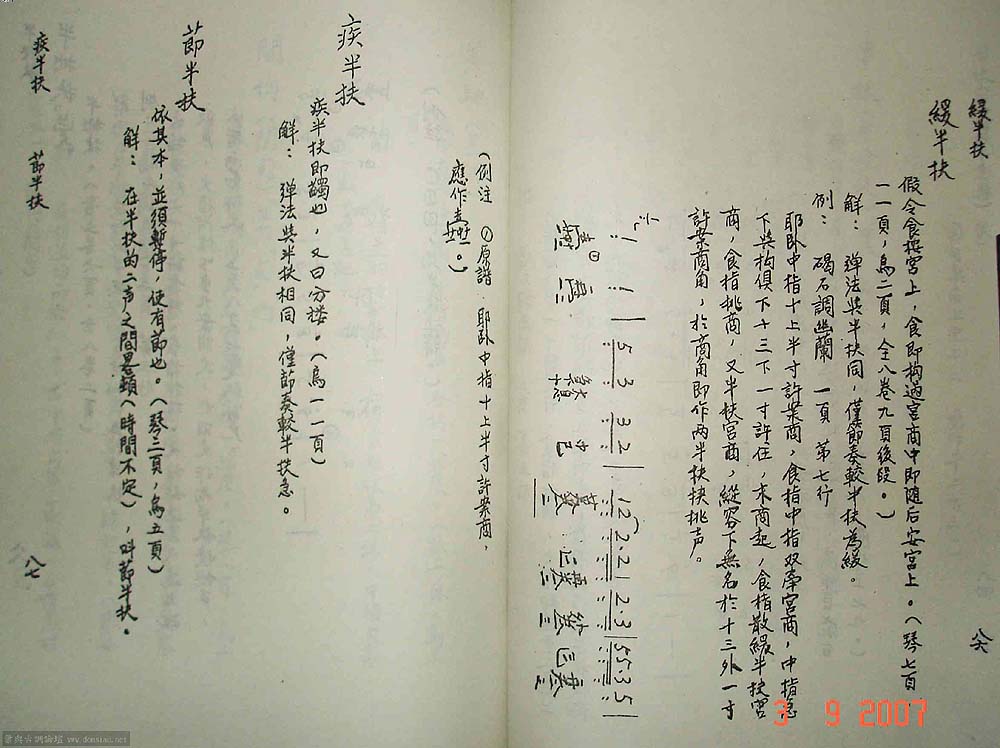 緩半扶
緩半扶
假令食擽宮上，食即构過宮商中即隨后安宮上。（琴七頁
一一頁，烏二頁，全八卷九頁後段。）
解： 弹法與半扶同，僅節奏較半扶為緩。
例： 碣石調幽蘭 一頁 第七行
耶卧中指十上半寸許案商，食指中指双牵宮商，中指急
下與构俱下十三下一寸許住，末商起，食指散緩半扶宮
商，食指挑商，又半扶宮商，縱容下無名於十三外一寸
許案商角，於商角即作兩半扶挟挑声。
八六
（例注 ①原譜 耶卧中指十上半寸許案商，
應作 。）
疾半扶
疾半扶即蠲也，又曰分摟。（烏一一頁）
解： 弹法與半扶相同，僅節奏較半扶急。
節半扶
依其本，並須暫停，使有節也。（琴二頁，烏五頁）
解： 在半扶的二声之間畧頓（時間不定），叫節半扶。
疾半扶 節半扶
八七
3 9 2007
www.donsiau.net